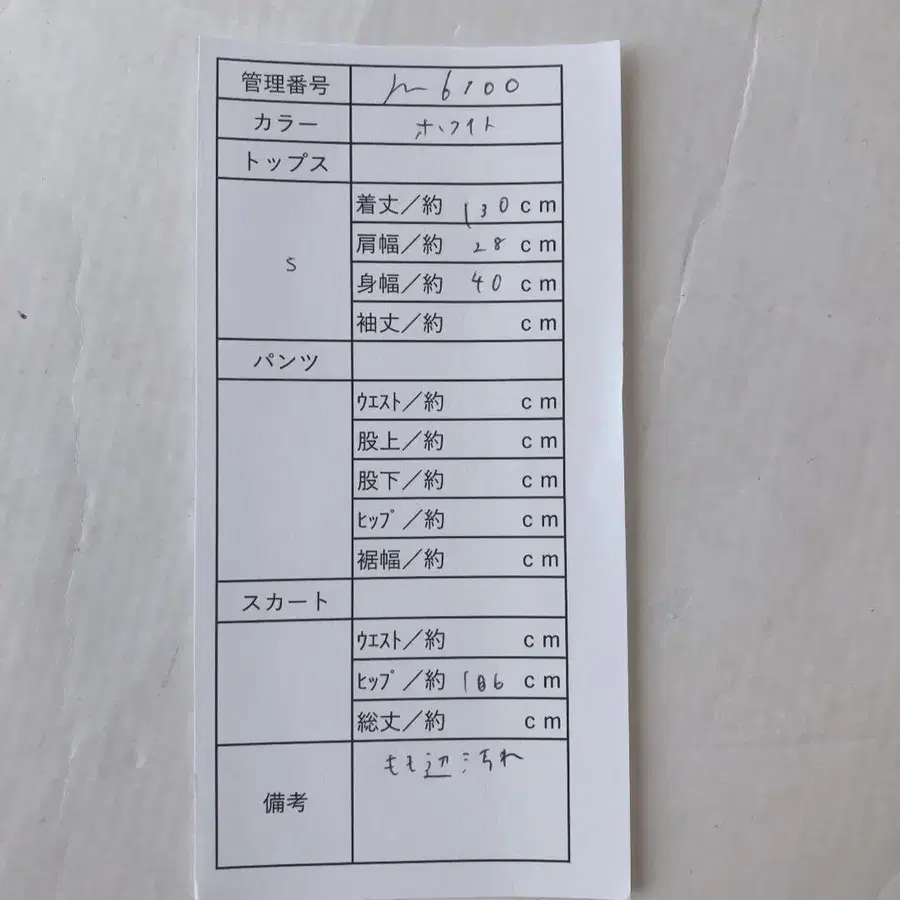 管理番号 m6100
カラー ホワイト
トップス
S
着丈／約 130 cm
肩幅／約 28 cm
身幅／約 40 cm
袖丈／約 cm
パンツ
ｳｴｽﾄ／約 cm
股上／約 cm
股下／約 cm
ﾋｯﾌﾟ／約 cm
裾幅／約 cm
スカート
ｳｴｽﾄ／約 cm
ﾋｯﾌﾟ／約 cm
総丈／約 cm
備考 もも辺汚れ